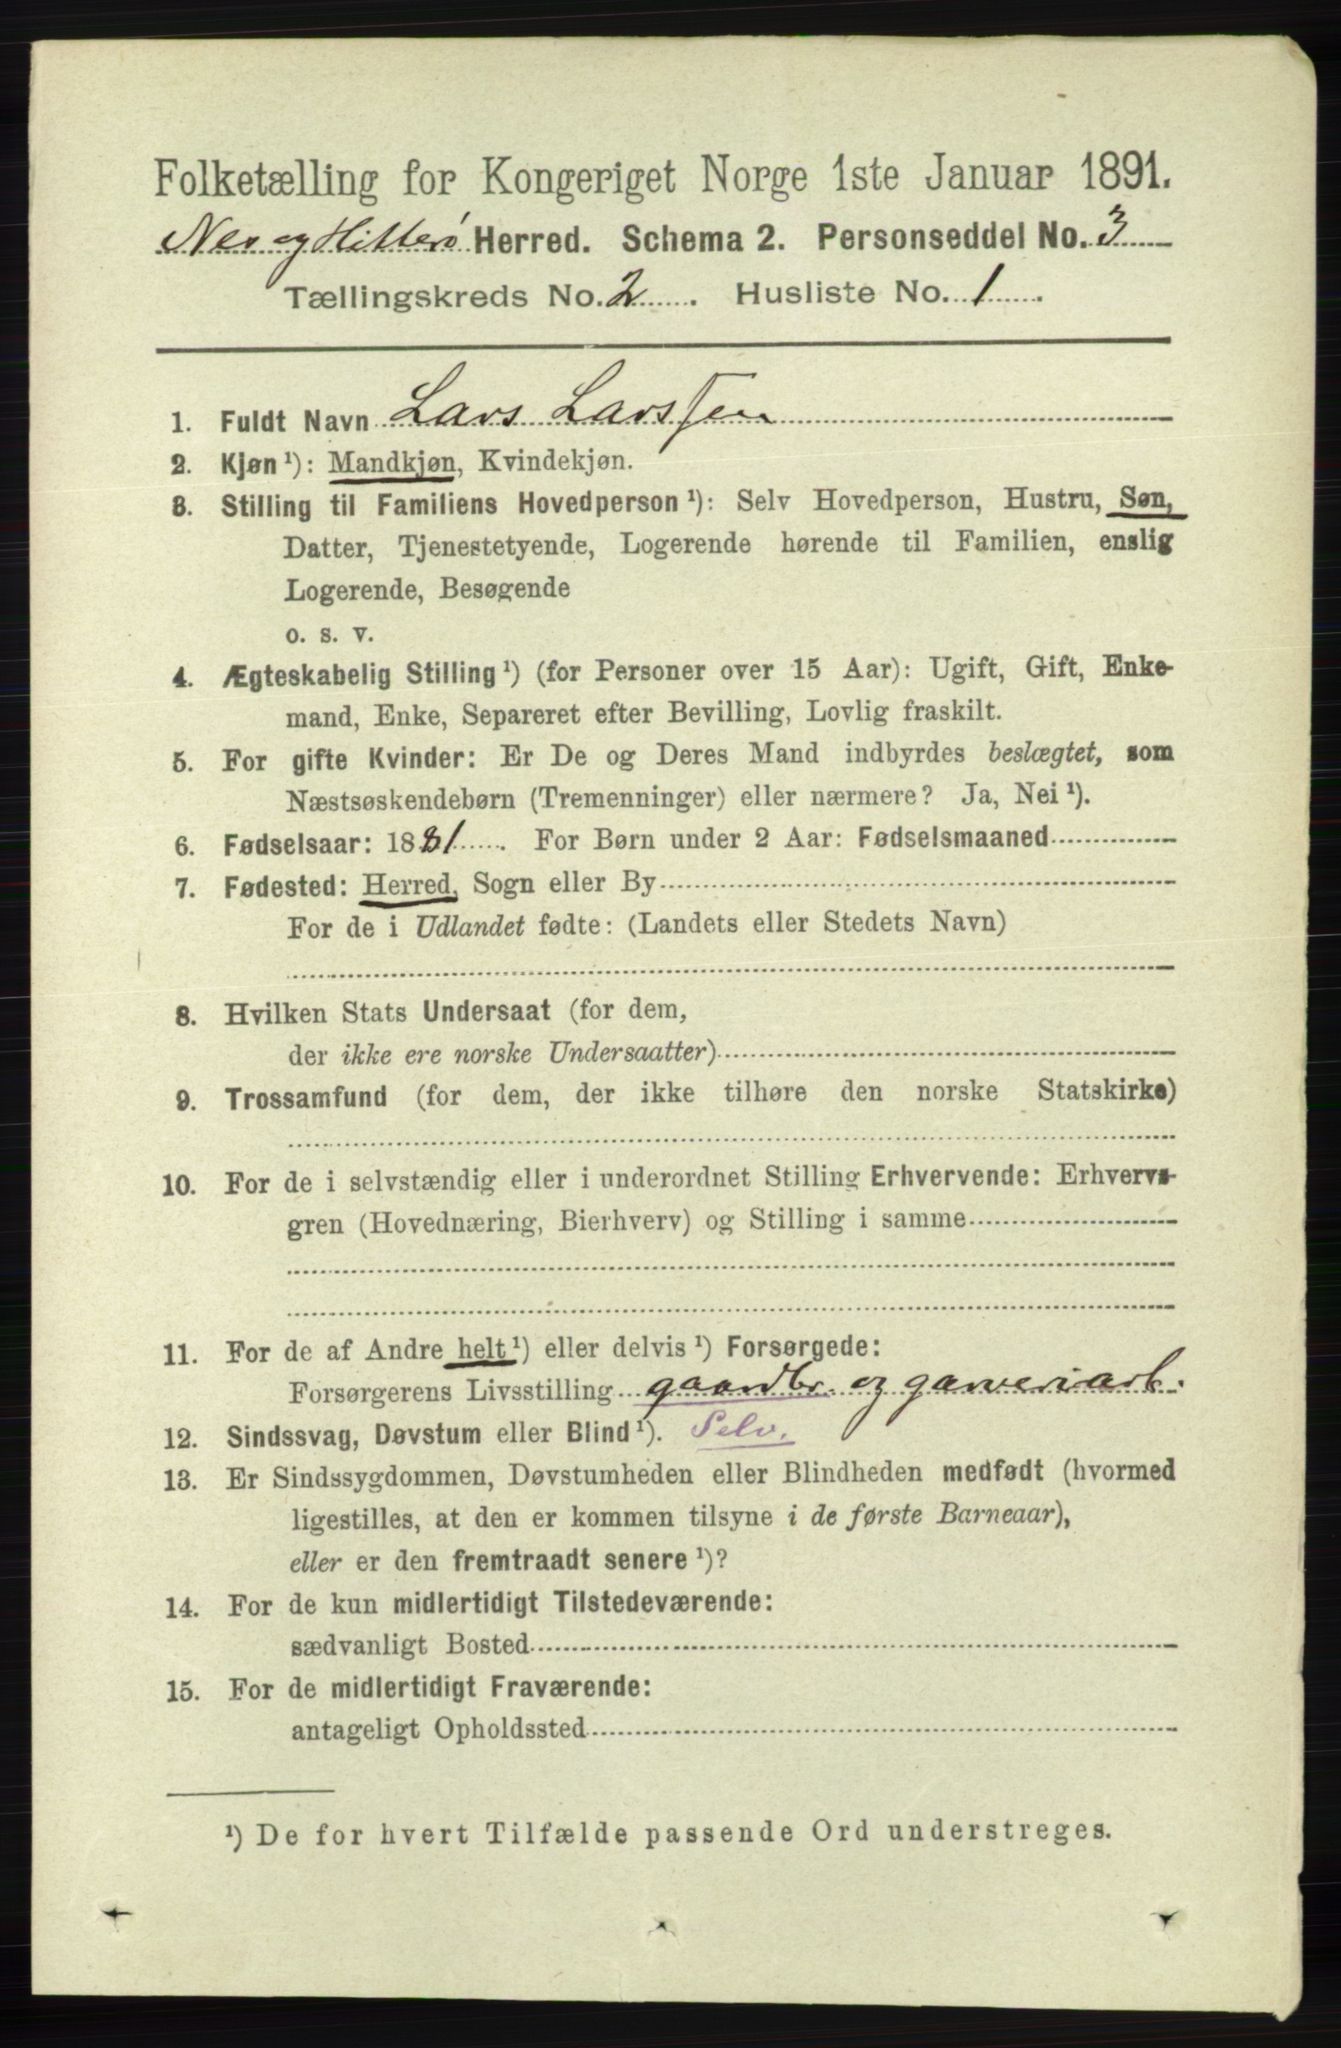 Folketælling for Kongeriget Norge 1ste Januar 1891.
Nes og Hitterø Herred. Schema 2. Personseddel No. 3
Tællingskreds No. 2 . Husliste No. 1 .
1. Fuldt Navn Lars Larssen
2. Kjøn ¹): Mandkjøn, Kvindekjøn.
3. Stilling til Familiens Hovedperson ¹): Selv Hovedperson, Hustru, Søn,
Datter, Tjenestetyende, Logerende hørende til Familien, enslig
Logerende, Besøgende
o. s. v.
4. Ægteskabelig Stilling ¹) (for Personer over 15 Aar): Ugift, Gift, Enke-
mand, Enke, Separeret efter Bevilling, Lovlig fraskilt.
5. For gifte Kvinder: Er De og Deres Mand indbyrdes beslægtet, som
Næstsøskendebørn (Tremenninger) eller nærmere? Ja, Nei ¹).
6. Fødselsaar: 1881 . For Børn under 2 Aar: Fødselsmaaned
7. Fødested: Herred, Sogn eller By
For de i Udlandet fødte: (Landets eller Stedets Navn)
8. Hvilken Stats Undersaat (for dem,
der ikke ere norske Undersaatter)
9. Trossamfund (for dem, der ikke tilhøre den norske Statskirke)
10. For de i selvstændig eller i underordnet Stilling Erhvervende: Erhvervs-
gren (Hovednæring, Bierhverv) og Stilling i samme
11. For de af Andre helt ¹) eller delvis ¹) Forsørgede:
Forsørgerens Livsstilling gaardbr. og garveriarb.
12. Sindssvag, Døvstum eller Blind ¹). Selv.
13. Er Sindssygdommen, Døvstumheden eller Blindheden medfødt (hvormed
ligestilles, at den er kommen tilsyne i de første Barneaar),
eller er den fremtraadt senere ¹)?
14. For de kun midlertidigt Tilstedeværende:
sædvanligt Bosted
15. For de midlertidigt Fraværende:
antageligt Opholdssted
¹) De for hvert Tilfælde passende Ord understreges.